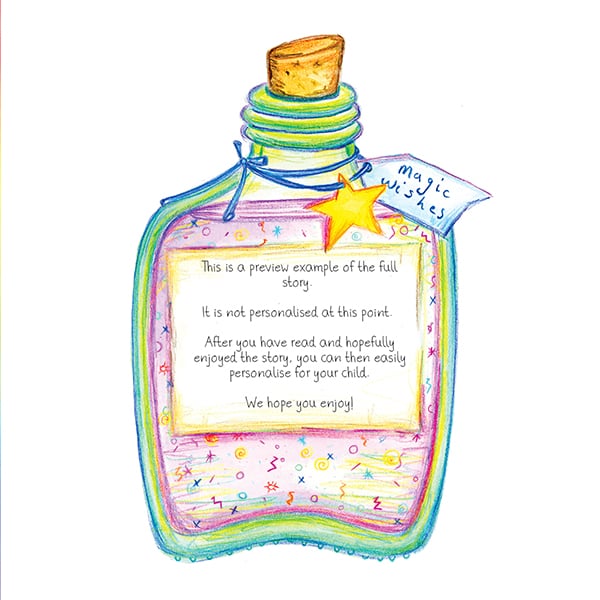 Magic
Wishes
This is a preview example of the full
story.
It is not personalised at this point.
After you have read and hopefully
enjoyed the story, you can then easily
personalise for your child.
We hope you enjoy!